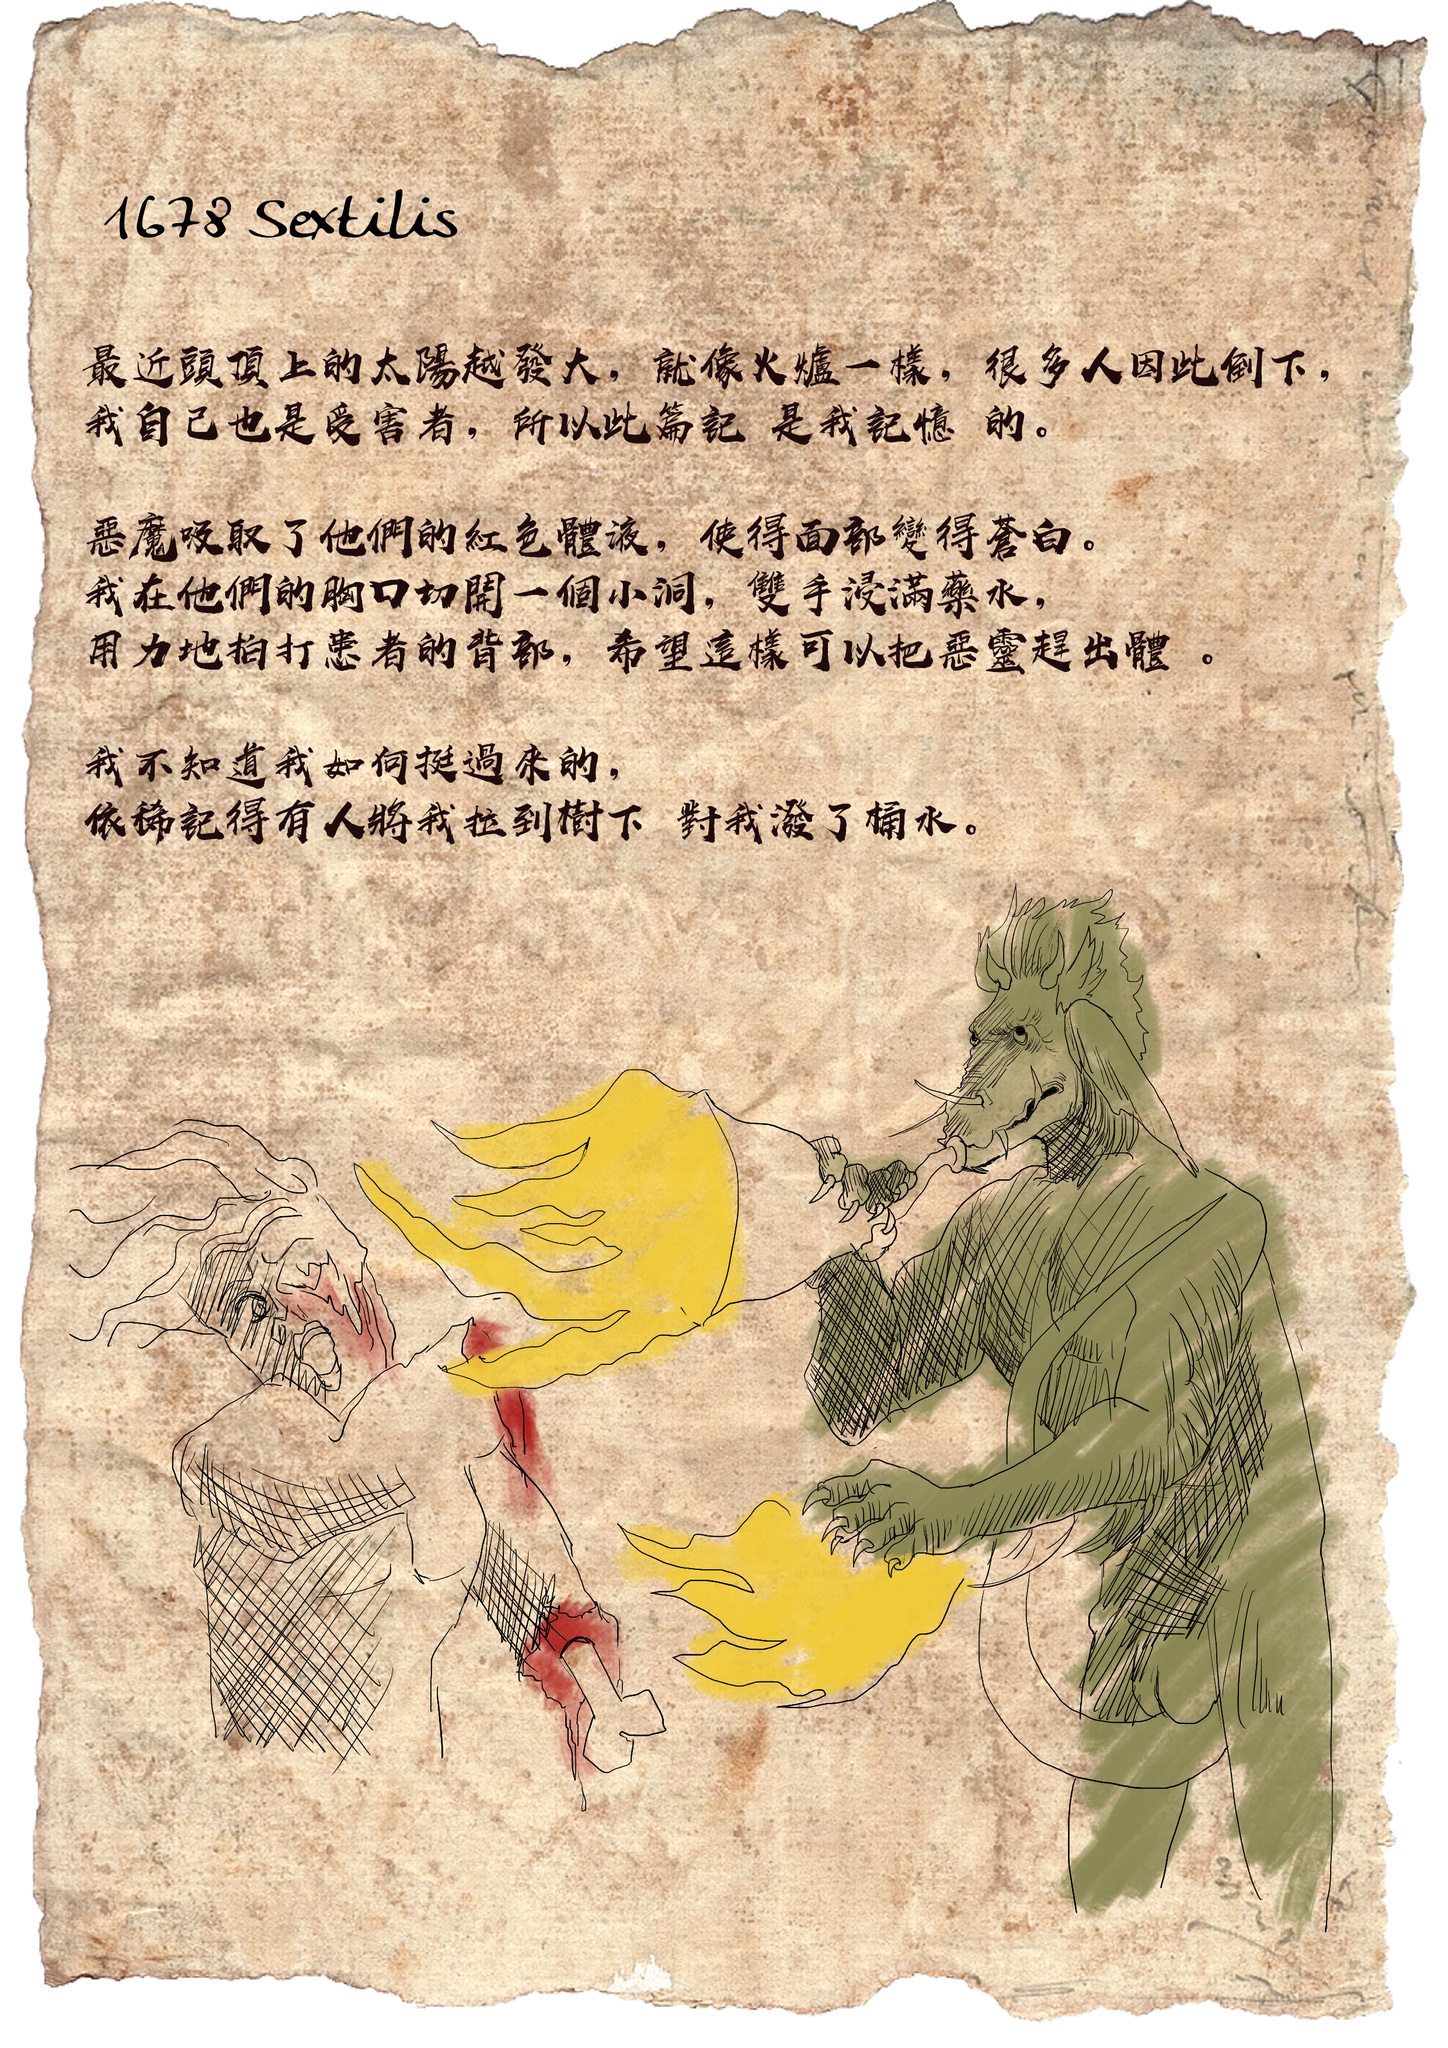 1678 Sextilis
最近頭頂上的太陽越發大，就像火爐一樣，很多人因此倒下，
我自己也是受害者，所以此篇記 是我記憶 的。
惡魔吸取了他們的紅色體液，使得面部變得蒼白。
我在他們的胸口切開一個小洞，雙手浸滿藥水，
用力地拍打患者的背部，希望這樣可以把惡靈趕出體 。
我不知道我如何挺過來的，
依稀記得有人將我拉到樹下 對我潑了桶水。